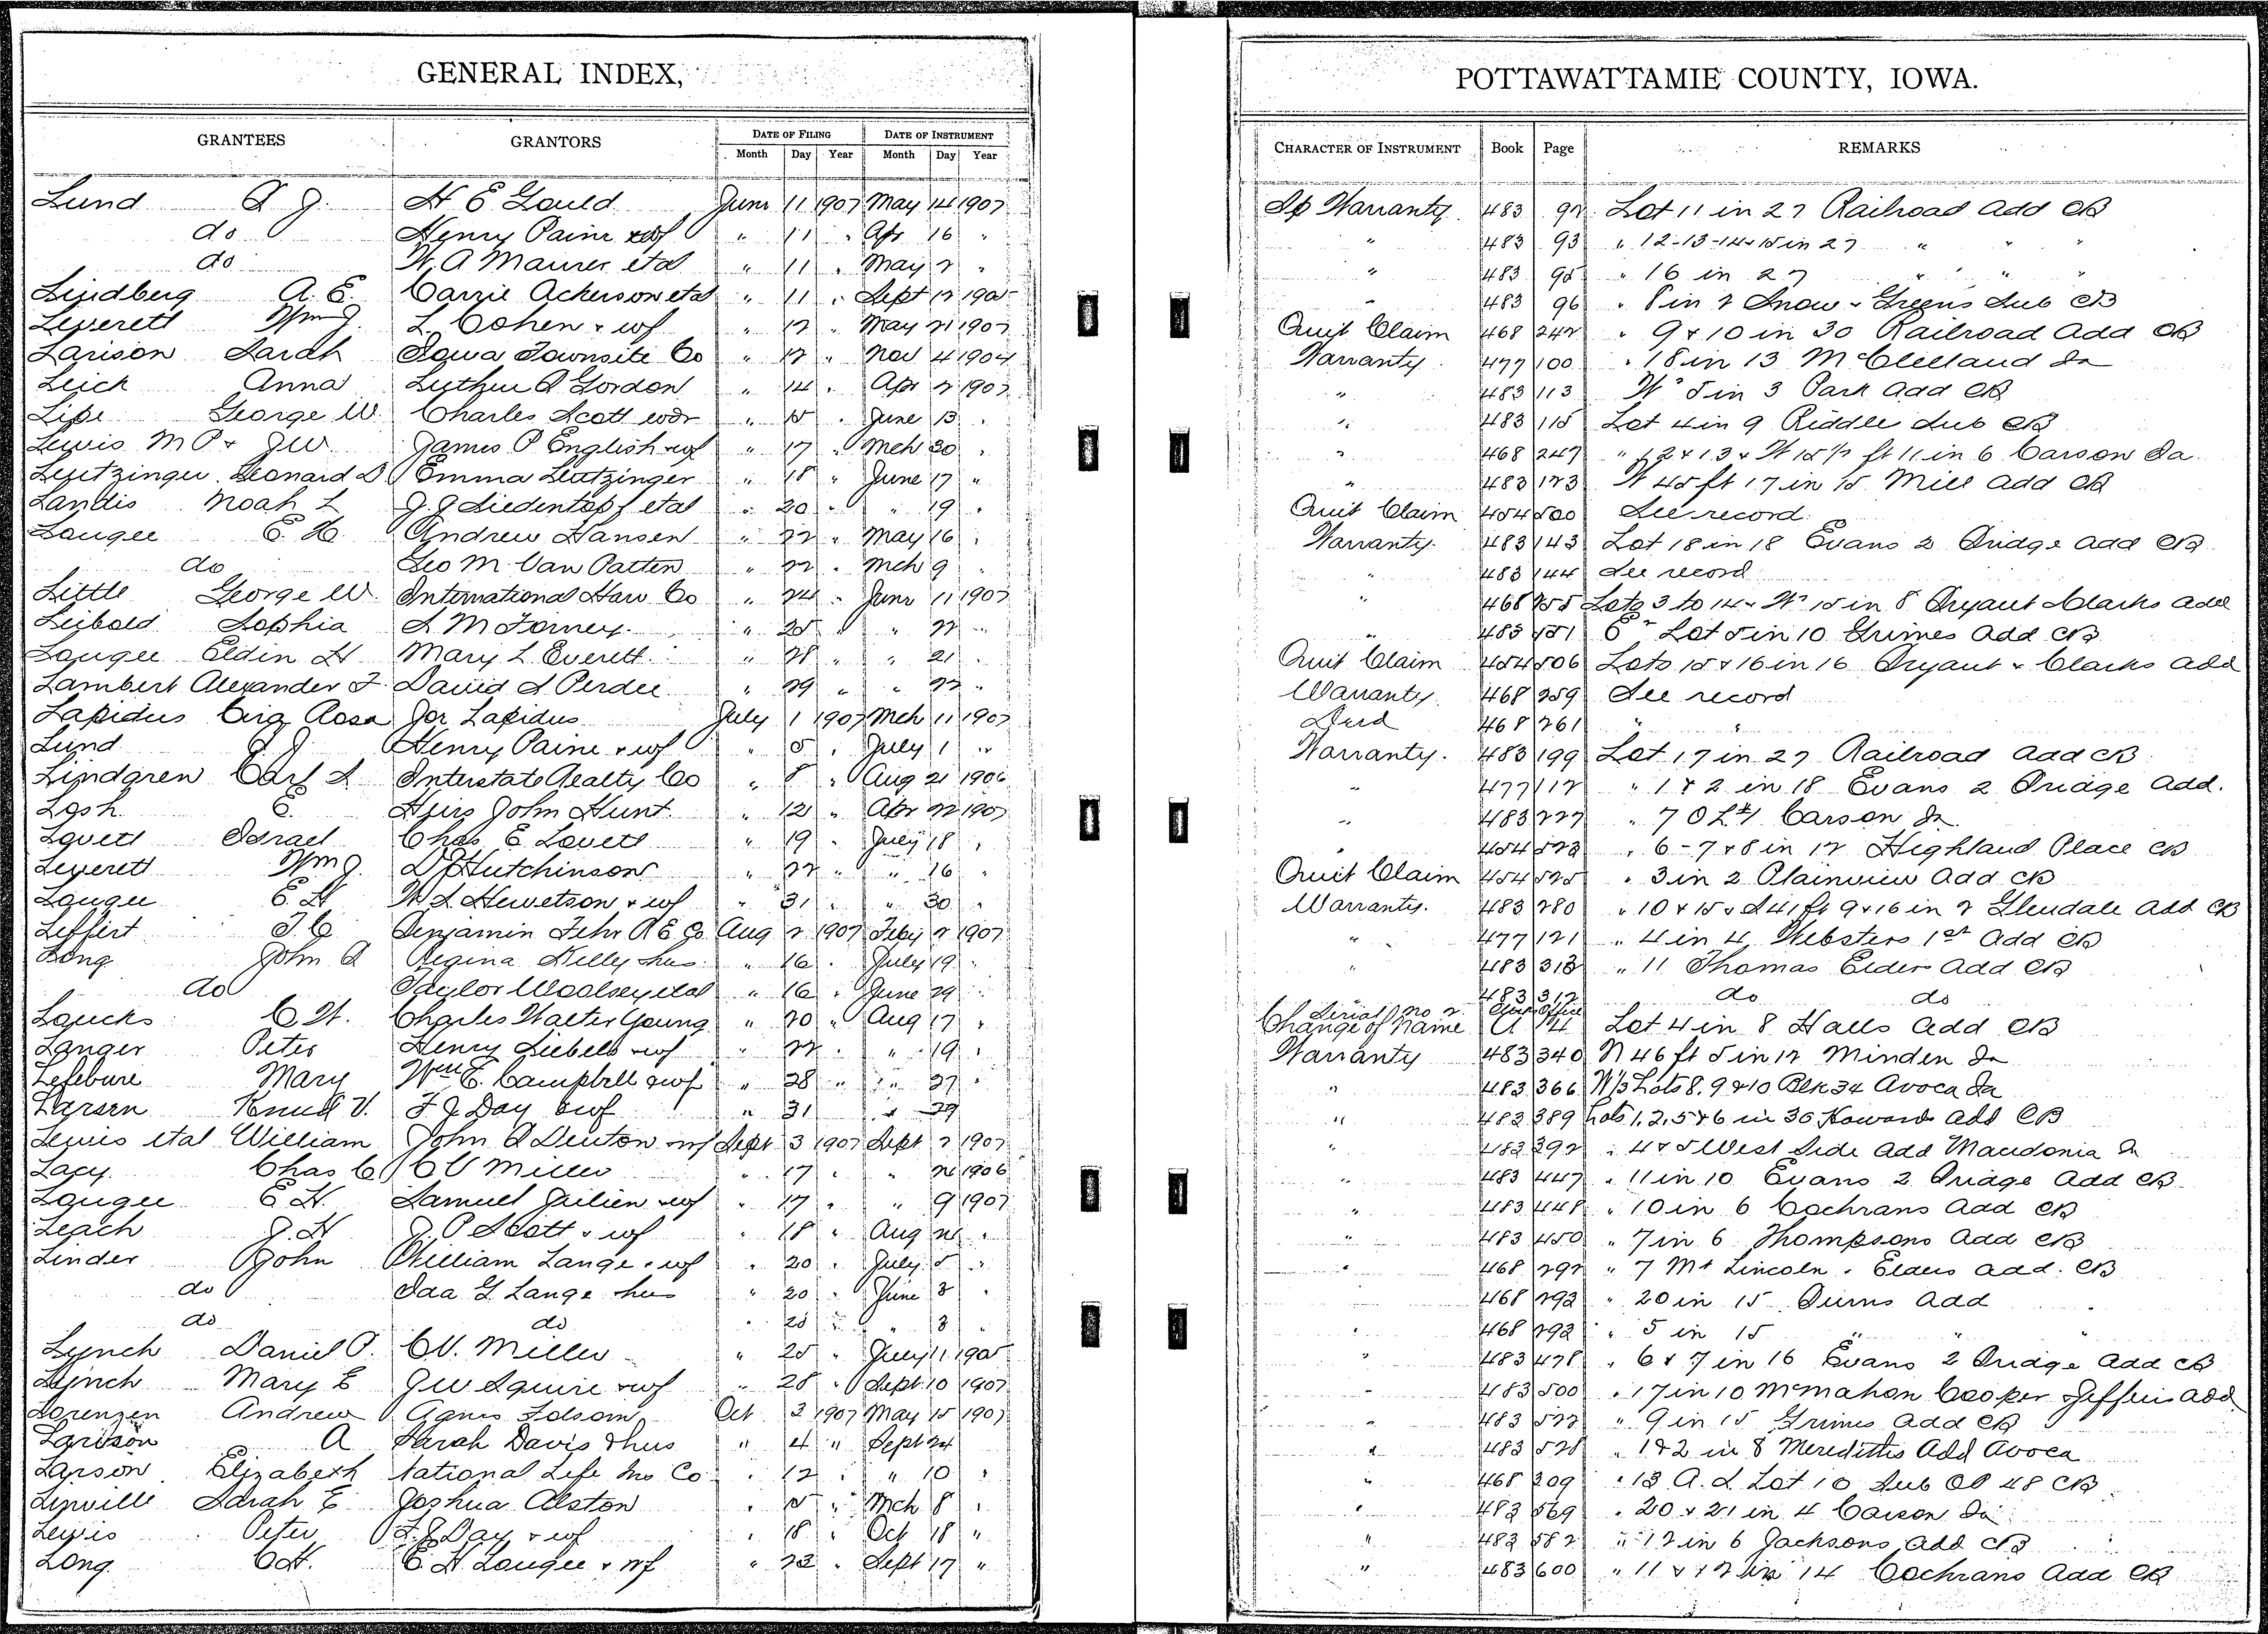 GENERAL INDEX,
GRANTEES GRANTORS DATE OF FILING DATE OF INSTRUMENT
Month Day Year Month Day Year
Lund A J. H E Gould June 11 1907 May 14 1907
do Henry Paine & wf " 11 " Apr 16 "
do W. A Maurer etal " 11 " May 2 "
Lindberg A. E. Carrie Ackerson etal " 11 " Sept 12 1905
Leverett Wm J. L. Cohen & wf " 12 " May 21 1907
Larison Sarah Iowa Townsite Co " 12 " Nov 4 1904
Leich Anna Luther A Gordon " 14 " Apr 2 1907
Lipe George W. Charles Scott wdr " 15 " June 13 "
Lewis M P & J W. James P English & wf " 17 " Mch 30 "
Leutzinger Leonard D Emma Leutzinger " 18 " June 17 "
Landis Noah L J. J Siedentopf etal " 20 " " 19 "
Lougee E. H. Andrew Hansen " 22 " May 16 "
do Geo M. Van Patten " 22 " Mch 9 "
Little George W. International Harv Co " 24 " June 11 1907
Leibold Sophia S M Forney " 25 " " 22 "
Lougee Eldin H Mary L Everett " 28 " " 21 "
Lambert Alexander F. David S Perdee " 29 " " 22 "
Lapidus Rosa Joe Lapidus July 1 1907 Mch 11 1907
Lund A J Henry Paine & wf " 5 " July 1 "
Lindgren Carl S Interstate Realty Co " 8 " Aug 21 1906
Losh E. Heirs John Hunt " 12 " Apr 22 1907
Lovett Israel Chas E Lovett " 19 " July 18 "
Leverett Wm J. D Hutchinson " 22 " " 16 "
Lougee E. H W S Hewetson & wf " 31 " " 30 "
Leffert J. C Benjamin Fehr R E Co Aug 2 1907 Feby 2 1907
Long John A Regina Kelly & hus " 16 " July 19 "
do Taylor Woolsey etal " 16 " June 29 "
Loucks C W. Charles Walter Young " 20 " Aug 17 "
Langer Peter Henry Siebels & wf " 22 " " 19 "
Lefebure Mary Wm E. Campbell & wf " 28 " " 27 "
Larsen Knud V. F. J Day & wf " 31 " " 29
Lewis etal William John A Denton & wf Sept 3 1907 Sept 2 1907
Lacy Chas C C V Miller " 17 " " 26 1906
Lougee E H. Samuel Julien & wf " 17 " " 9 1907
Leach J. H J. P Scott & wf " 18 " Aug 26 "
Linder John William Lange & wf " 20 " July 5 "
do Ida G Lange & hus " 20 " June 3 "
do do " 20 " " 3 "
Lynch Daniel P. C V. Miller " 25 " July 11 1905
Lynch Mary E J W Squire & wf " 28 " Sept 10 1907
Lorenzen Andrew Agnes Folsom Oct 2 1907 May 15 1907
Larison A Sarah Davis & hus " 4 " Sept 24
Larson Elizabeth National Life Ins Co " 12 " " 10 "
Linville Sarah E Joshua Alston " 15 " Mch 8 "
Lewis Peter F. J Day & wf " 18 " Oct 18 "
Long O H. E. H Lougee & wf " 22 " Sept 17 "
POTTAWATTAMIE COUNTY, IOWA.
CHARACTER OF INSTRUMENT Book Page REMARKS
Sp Warranty 483 92 Lot 11 in 27 Railroad Add CB
" 483 93 " 12-13-14 & 15 in 27 " " "
" 483 95 " 16 in 27 " " "
" 483 96 " 8 in 2 Snow & Greens Sub CB
Quit Claim 468 242 " 9 & 10 in 30 Railroad Add CB
Warranty 477 100 " 18 in 13 McClelland Ia
" 483 113 W 5 in 3 Park Add CB
" 483 115 Lot 4 in 9 Riddle Sub CB
" 468 247 " 12 & 13 & W 15 1/2 ft 11 in 6 Carson Ia
" 483 123 W 45 ft 17 in 15 Mill Add CB
Quit Claim 454 500 See record
Warranty 483 143 Lot 18 in 18 Evans 2 Bridge Add CB
" 483 144 See record
" 468 255 Lots 3 to 14 & W 15 in 8 Bryant Clarks Add
" 483 151 E Lot 5 in 10 Grimes Add CB
Quit Claim 454 506 Lots 15 & 16 in 16 Bryant & Clarks Add
Warranty 468 259 See record
Deed 468 261 " "
Warranty 483 199 Lot 17 in 27 Railroad Add CB
" 477 112 " 1 & 2 in 18 Evans 2 Bridge Add.
" 483 227 " 7 O L Carson Ia
" 454 523 " 6-7 & 8 in 12 Highland Place CB
Quit Claim 454 525 " 3 in 2 Plainview Add CB
Warranty 483 280 " 10 & 15 & S 41 ft 9 & 16 in 2 Glendale Add CB
" 477 121 " 4 in 4 Websters 1st Add CB
" 483 313 " 11 Thomas Elder Add CB
483 312 do do
Serial No 2 Clerk Office
Change of Name A 14 Lot 4 in 8 Halls Add CB
Warranty 483 340 N 46 ft 5 in 12 Minden Ia
" 483 366 W 1/3 Lots 8. 9 & 10 Blk 34 Avoca Ia
" 483 389 Lots 1, 2, 5 & 6 in 36 Howard Add CB
" 483 392 " 4 & 5 West Side Add Macedonia Ia
" 483 447 " 11 in 10 Evans 2 Bridge Add CB
" 483 448 " 10 in 6 Cochrans Add CB
" 483 450 " 7 in 6 Thompsons Add CB
" 468 292 " 7 Mt Lincoln & Elders Add. CB
468 293 " 20 in 15 Burns Add
" 468 293 " 5 in 15 " "
" 483 478 " 6 & 7 in 16 Evans 2 Bridge Add CB
" 483 500 " 17 in 10 McMahon Cooper & Jefferis Add
" 483 522 " 9 in 15 Grimes Add CB
" 483 528 " 1 & 2 in 8 Merediths Add Avoca
" 468 309 " 13 A. S. Lot 10 Sub OP 48 CB
" 483 569 " 20 & 21 in 4 Carson Ia
" 483 582 " 12 in 6 Jacksons Add CB
" 483 600 " 11 & 12 in 14 Cochrans Add CB